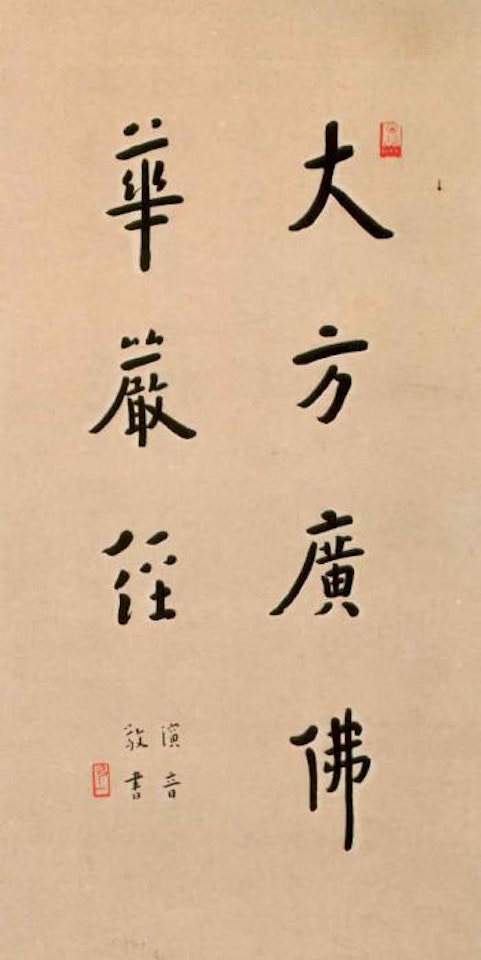 大方廣佛
華嚴經
演音
敬書